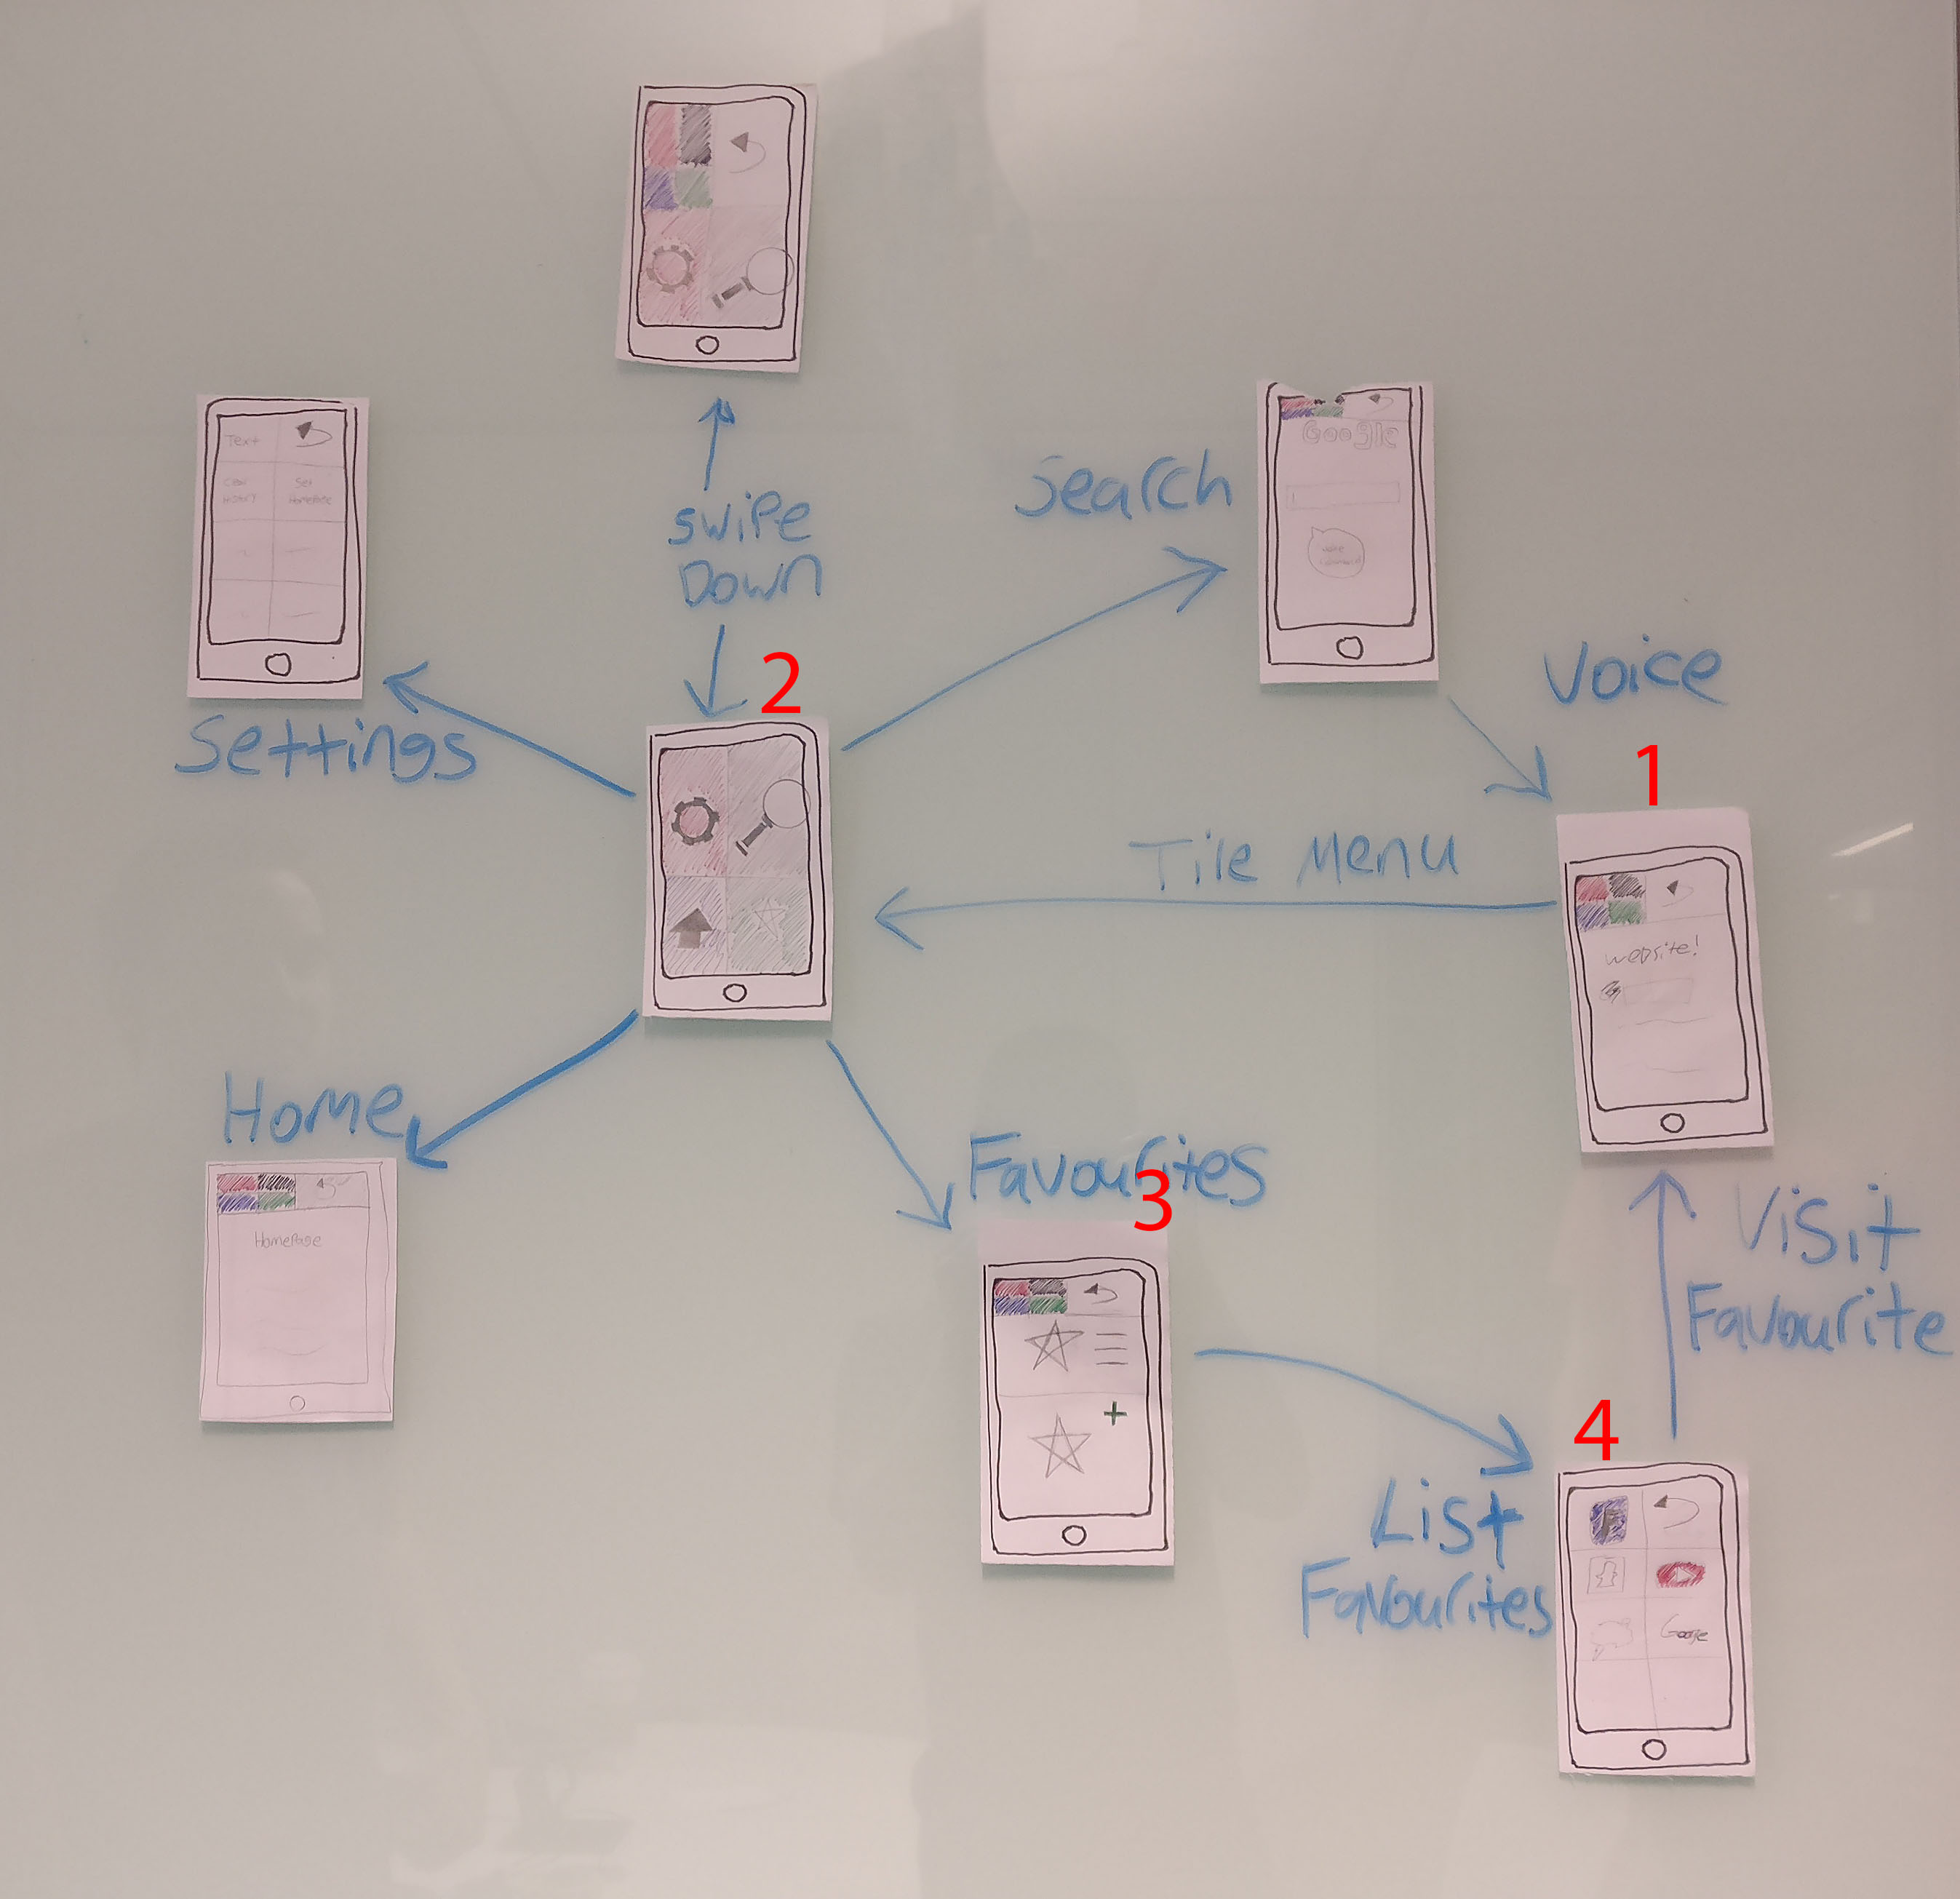 Text
Clear
History
Set
HomePage
Settings
swipe
Down
Search
Google
voice
command
Voice
2
1
Tile Menu
website!
Home
HomePage
Favourites
3
Visit
Favourite
4
List
Favourites
F
Google